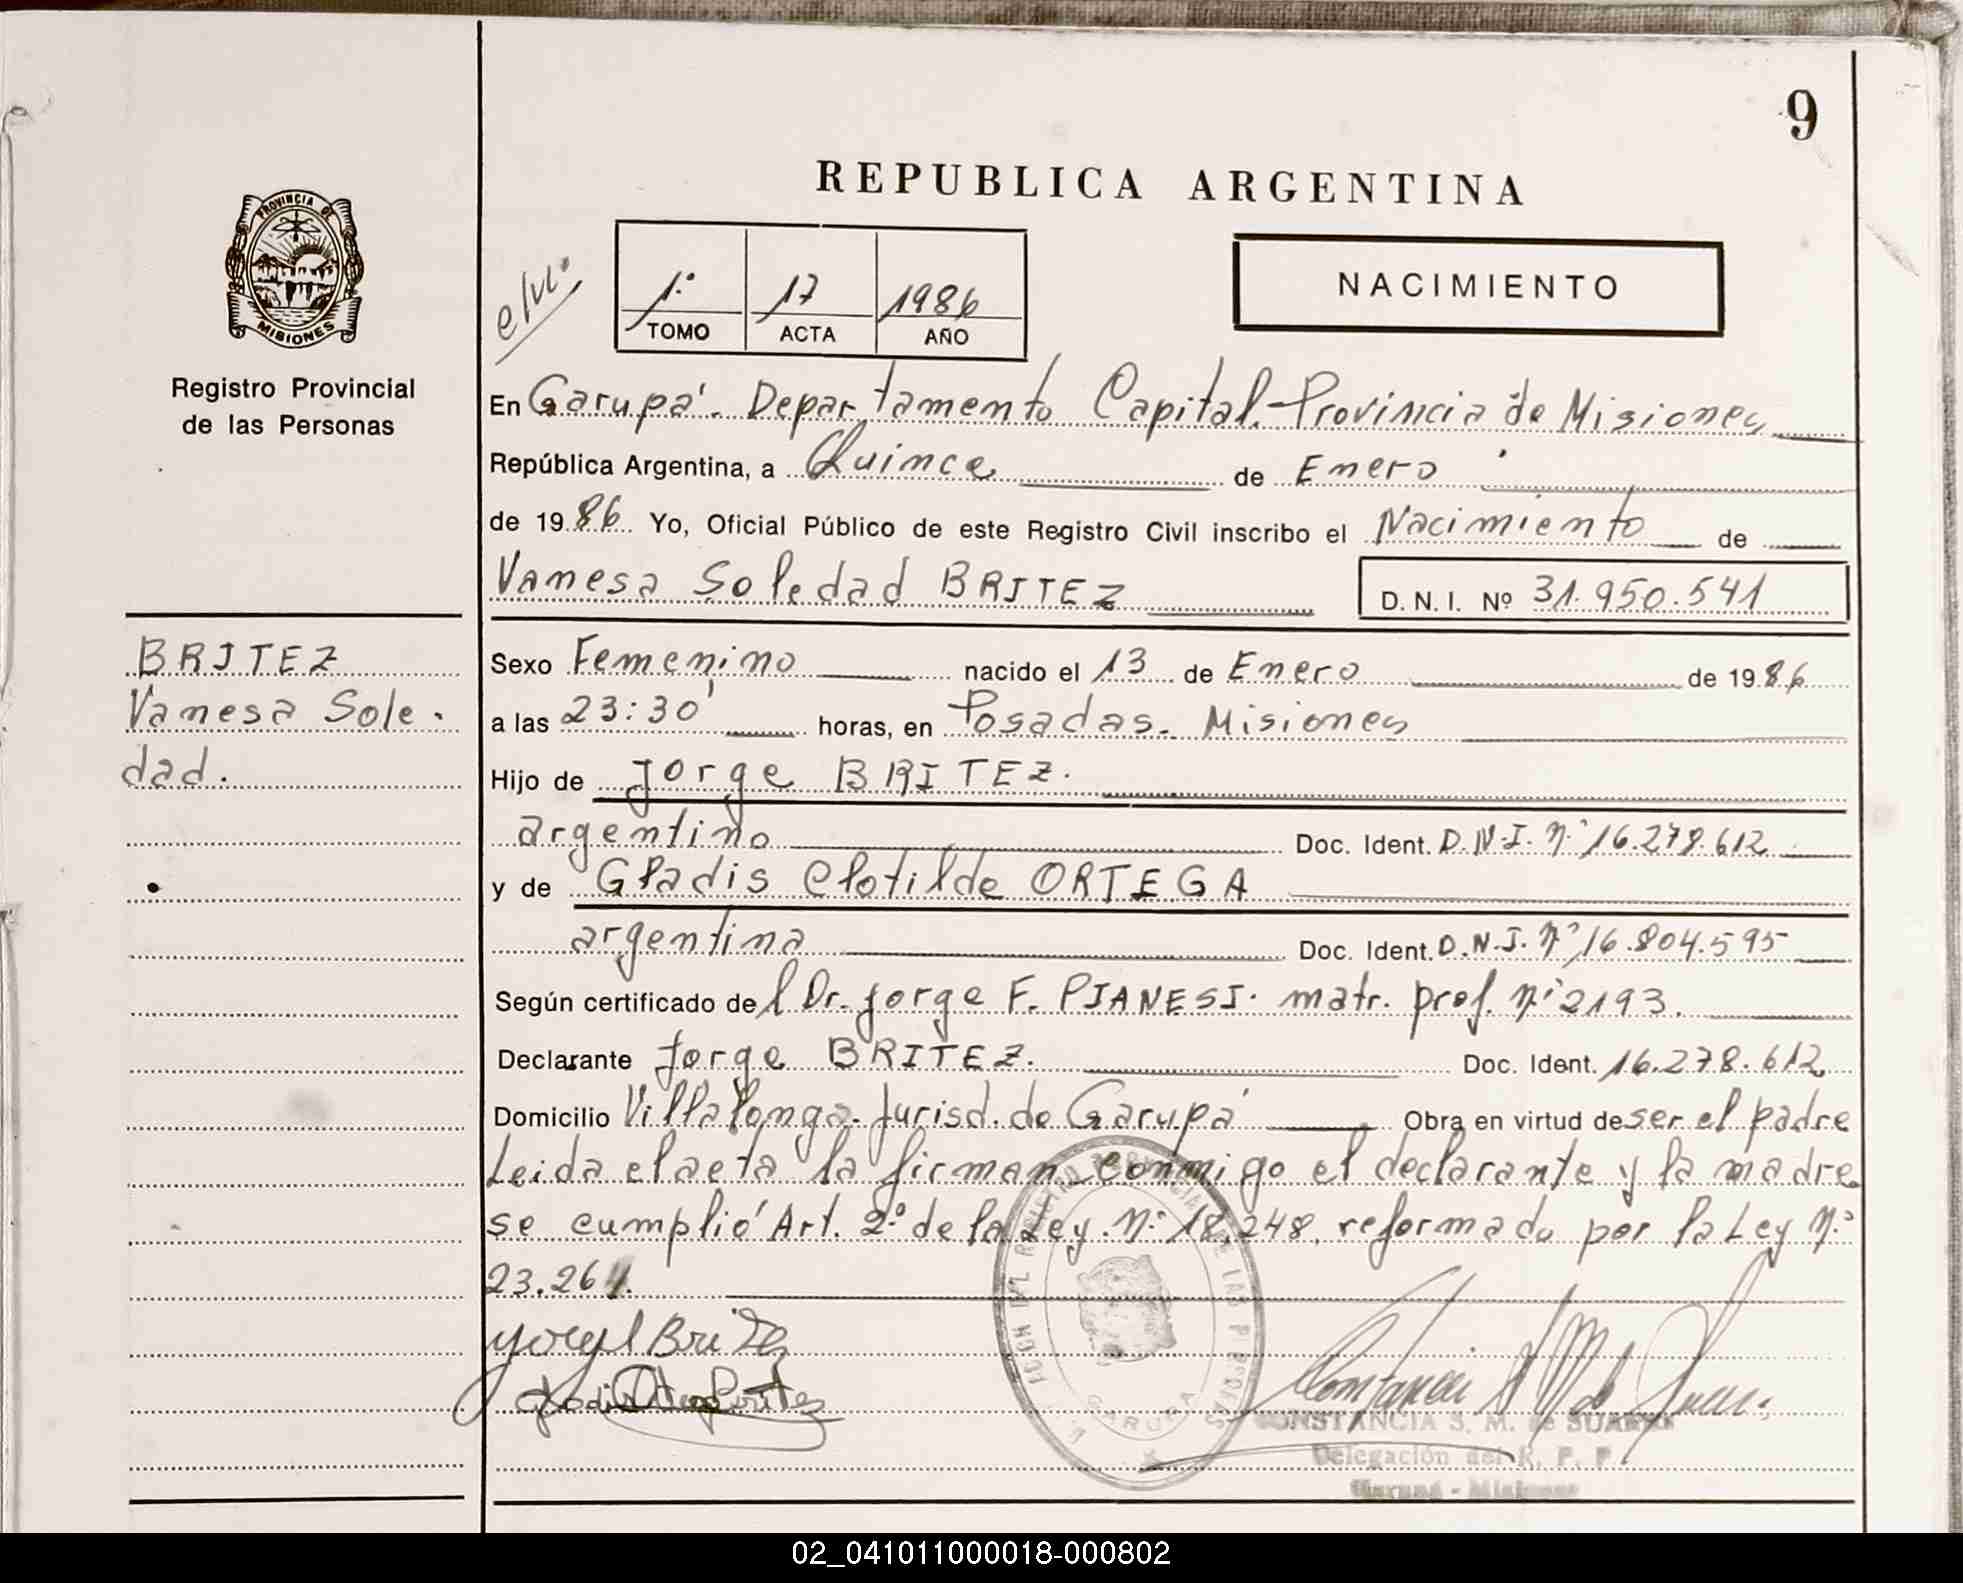 9
REPUBLICA ARGENTINA
PROVINCIA DE
MISIONES
Registro Provincial
de las Personas
1º 17 1986
TOMO ACTA AÑO
NACIMIENTO
En Garupá. Departamento Capital. Provincia de Misiones
República Argentina, a Quince de Enero
de 1986 Yo, Oficial Público de este Registro Civil inscribo el Nacimiento de
Vanesa Soledad BRITEZ D. N. I. Nº 31.950.541
BRITEZ
Vanesa Sole-
dad.
Sexo Femenino nacido el 13 de Enero de 1986
a las 23:30' horas, en Posadas. Misiones
Hijo de Jorge BRITEZ.
argentino Doc. Ident. D.N.I. Nº 16.278.612
y de Gladis Clotilde ORTEGA
argentina Doc. Ident. D.N.I. Nº 16.804.595
Según certificado del Dr. Jorge F. PIANESI. matr. prof. nº 2193.
Declarante Jorge BRITEZ. Doc. Ident. 16.278.612
Domicilio Villalonga. Jurisd. de Garupá Obra en virtud de ser el padre
Leida el acta la firman conmigo el declarante y la madre
se cumplió Art. 2º de la Ley. Nº 18.248. reformado por la Ley Nº
23.26
GARUPA
CONSTANCIA S. M. de SUAREZ
Delegación del R. P. P.
Garupá - Misiones
02_041011000018-000802